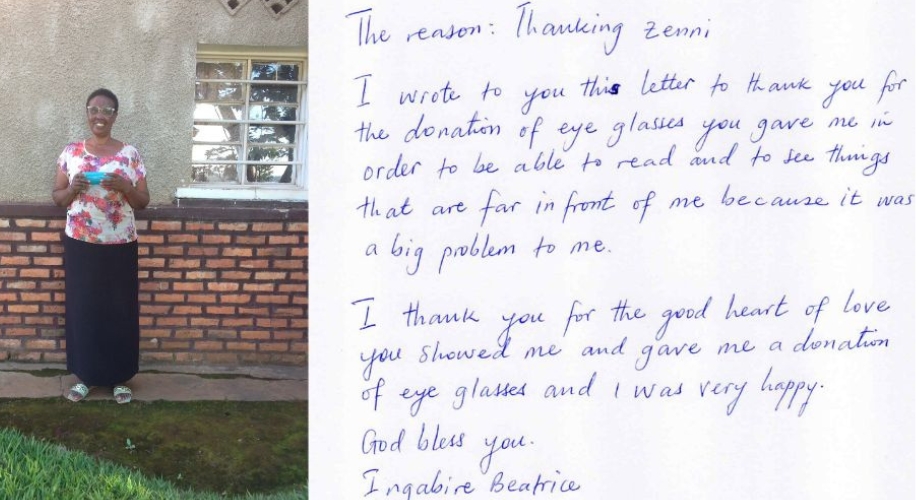 The reason: Thanking Zenni
I wrote to you this letter to thank you for
the donation of eye glasses you gave me in
order to be able to read and to see things
that are far in front of me because it was
a big problem to me.
I thank you for the good heart of love
you showed me and gave me a donation
of eye glasses and I was very happy.
God bless you.
Ingabire Beatrice